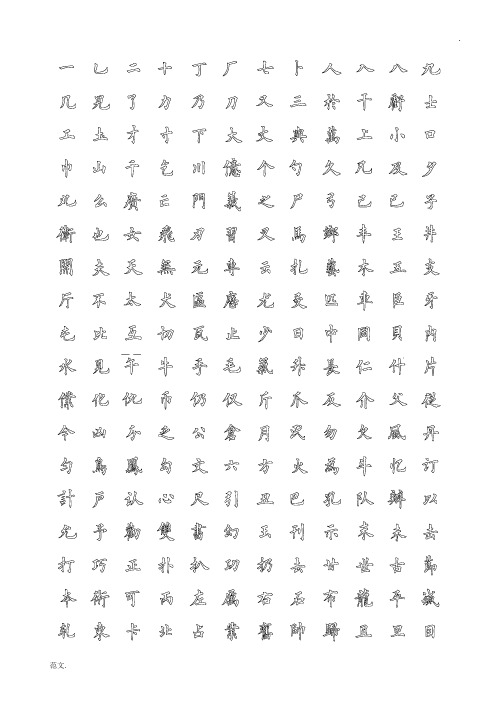 一 乙 二 十 丁 厂 七 卜 人 入 八 九
几 兒 了 力 乃 刀 又 三 於 干 虧 士
工 土 才 寸 下 大 丈 與 萬 上 小 口
巾 山 千 乞 川 億 个 勺 久 凡 及 夕
丸 么 廣 亡 門 義 之 尸 弓 己 已 子
衛 也 女 飛 刃 習 叉 馬 鄉 丰 王 井
開 夫 天 無 元 專 云 扎 藝 木 五 支
廳 不 太 犬 區 歷 尤 友 匹 車 巨 牙
屯 比 互 切 瓦 止 少 日 中 岡 貝 內
水 見 午 牛 手 毛 氣 升 長 仁 什 片
僕 化 仇 幣 仍 僅 斤 爪 反 介 父 從
今 凶 分 乏 公 倉 月 氏 勿 欠 風 丹
勻 烏 鳳 勾 文 六 方 火 為 鬥 憶 訂
計 戶 認 心 尺 引 丑 巴 孔 隊 辦 以
允 予 勸 雙 書 幻 玉 刊 示 末 未 擊
打 巧 正 撲 扒 功 扔 去 甘 世 古 節
本 術 可 丙 左 厲 右 石 布 龍 平 滅
軋 東 卡 北 占 業 舊 帥 歸 且 旦 目
范文.